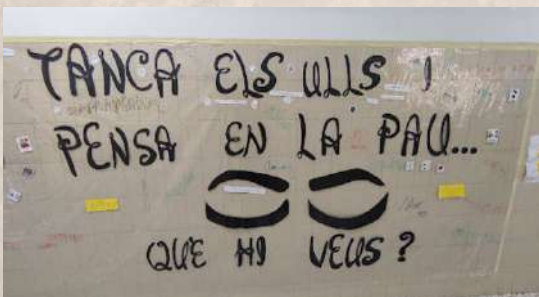 TANCA ELS ULLS I
PENSA EN LA PAU...
QUE HI VEUS?